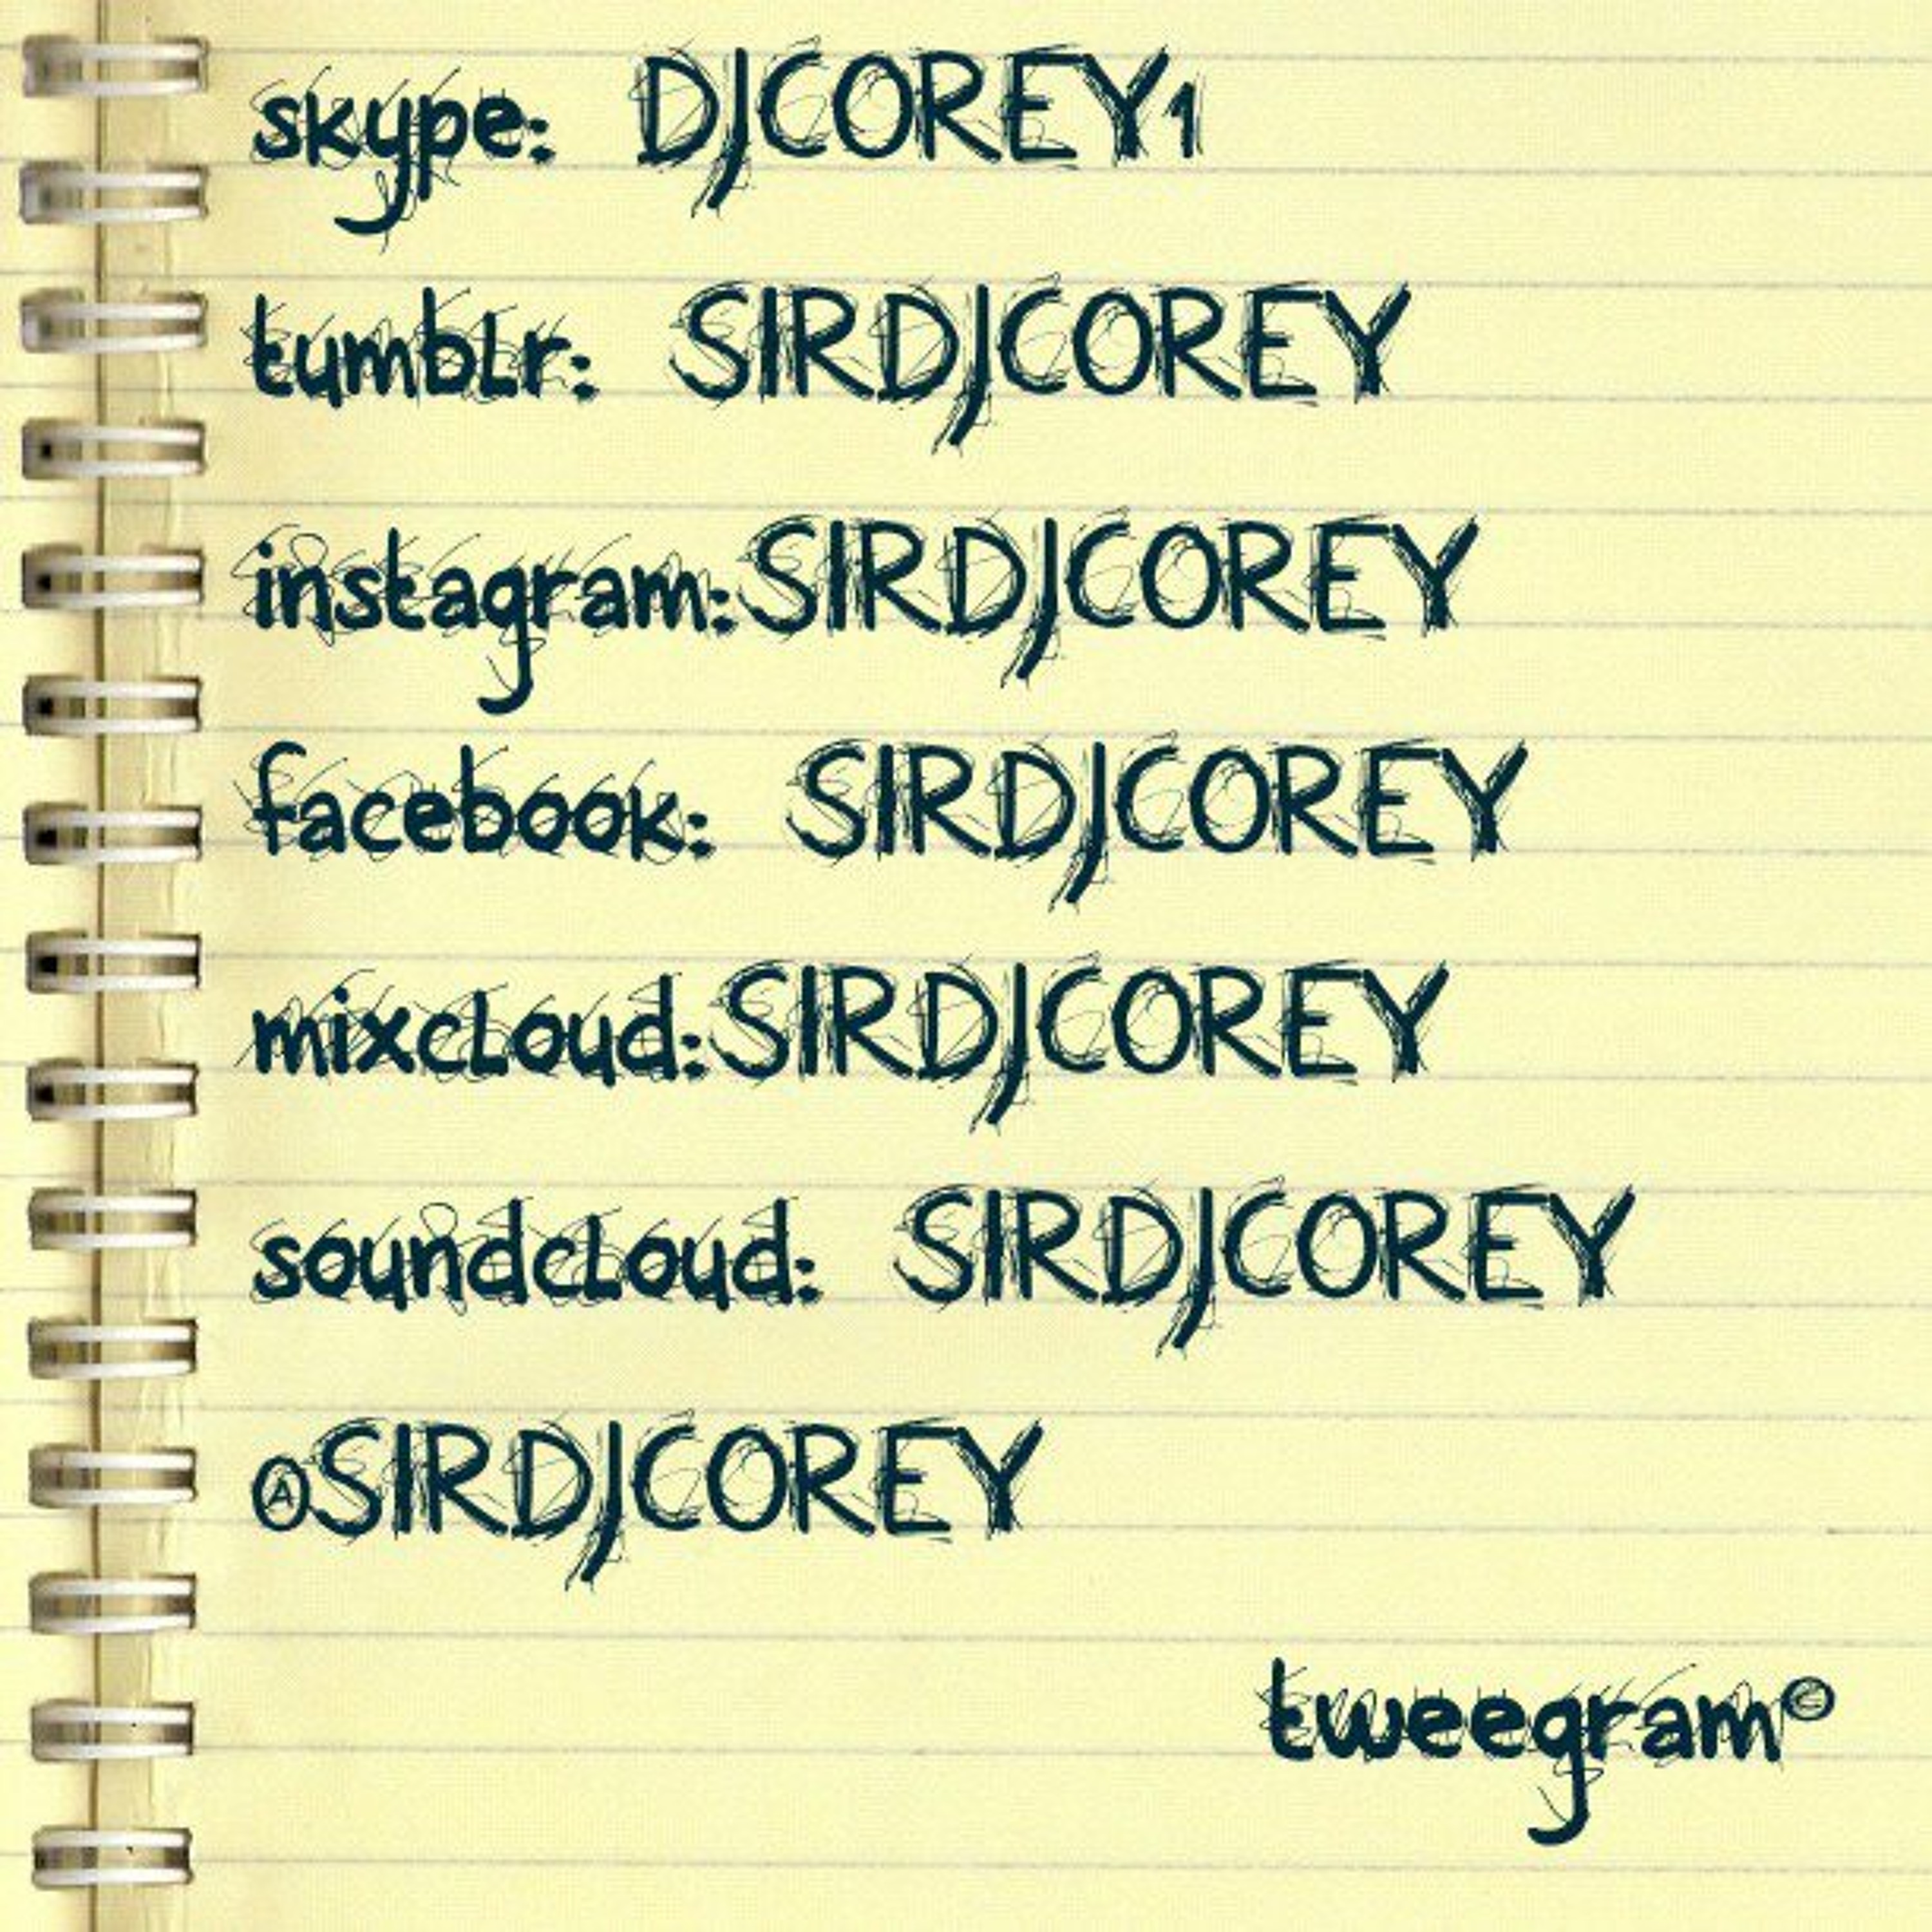 skype: DJCOREY1
tumblr: SIRDJCOREY
instagram:SIRDJCOREY
facebook: SIRDJCOREY
mixcloud:SIRDJCOREY
soundcloud: SIRDJCOREY
@SIRDJCOREY
tweegram©